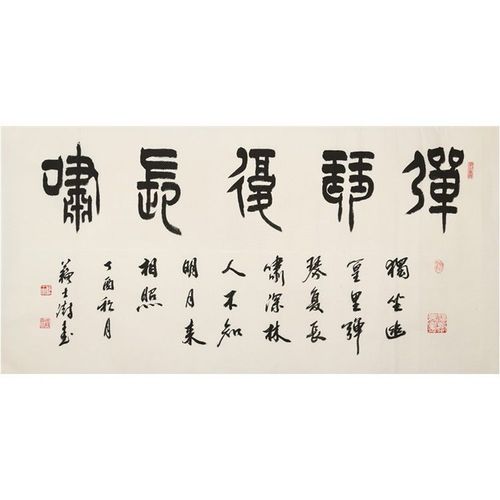 彈琴復長嘯
獨坐幽
篁里彈
琴复長
嘯深林
人不知
明月来
相照
丁酉秋月
蘇士澍書